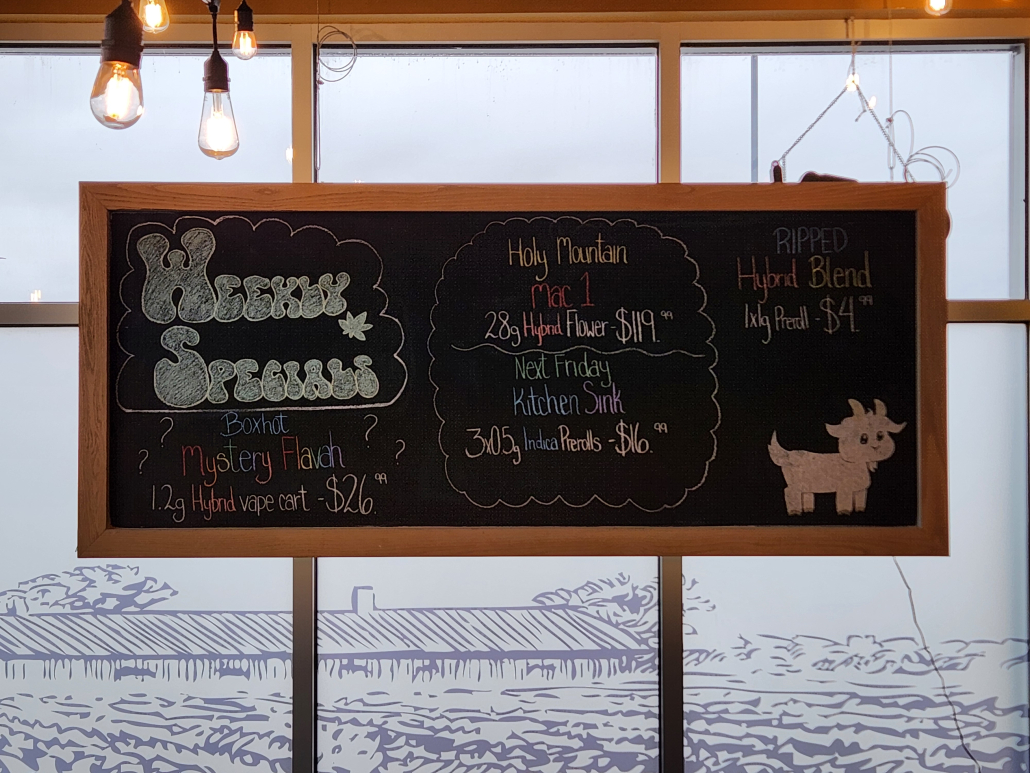 Weekly
Specials
Boxhot
Mystery Flavah
1.2g Hybrid vape cart - $26.99
Holy Mountain
Mac 1
28g Hybrid Flower - $119.99
Next Friday
Kitchen Sink
3x0.5g Indica Prerolls - $16.99
RIPPED
Hybrid Blend
1x1g Preroll - $4.99